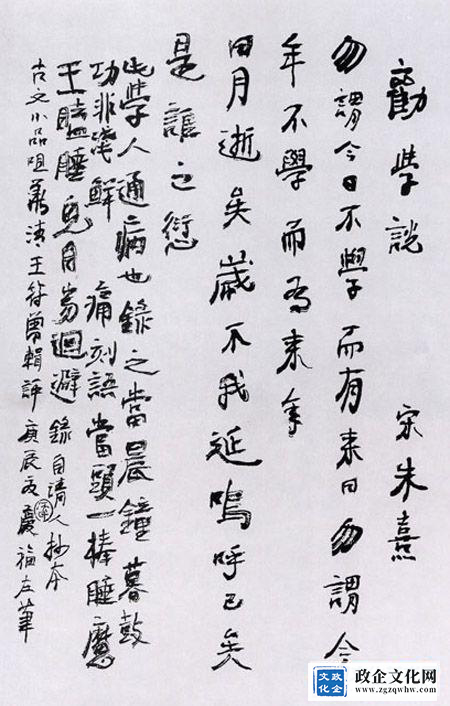 勸學說 宋朱熹
勿謂今日不學而有来日勿謂今
年不學而来年
日月逝矣歲不我延嗚呼已矣
是誰之愆
此學人通病也錄之當晨鐘暮鼓
功非淺鮮 痛刻語當頭一棒睡魔
王瞌睡鬼自當迴避 錄自清人抄本
古文小品咀華清王符曾輯評 庚辰慶福左筆
政企文化
政企文化网
www.zgzqwhw.com